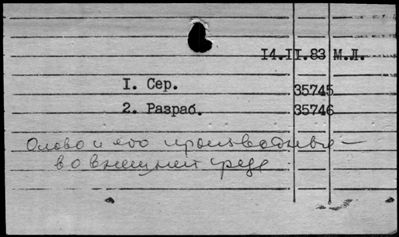 14.II.83 М.Л.
1. Сер. 35745
2. Разраб. 35746
Олово и его производные —
во внешней среде